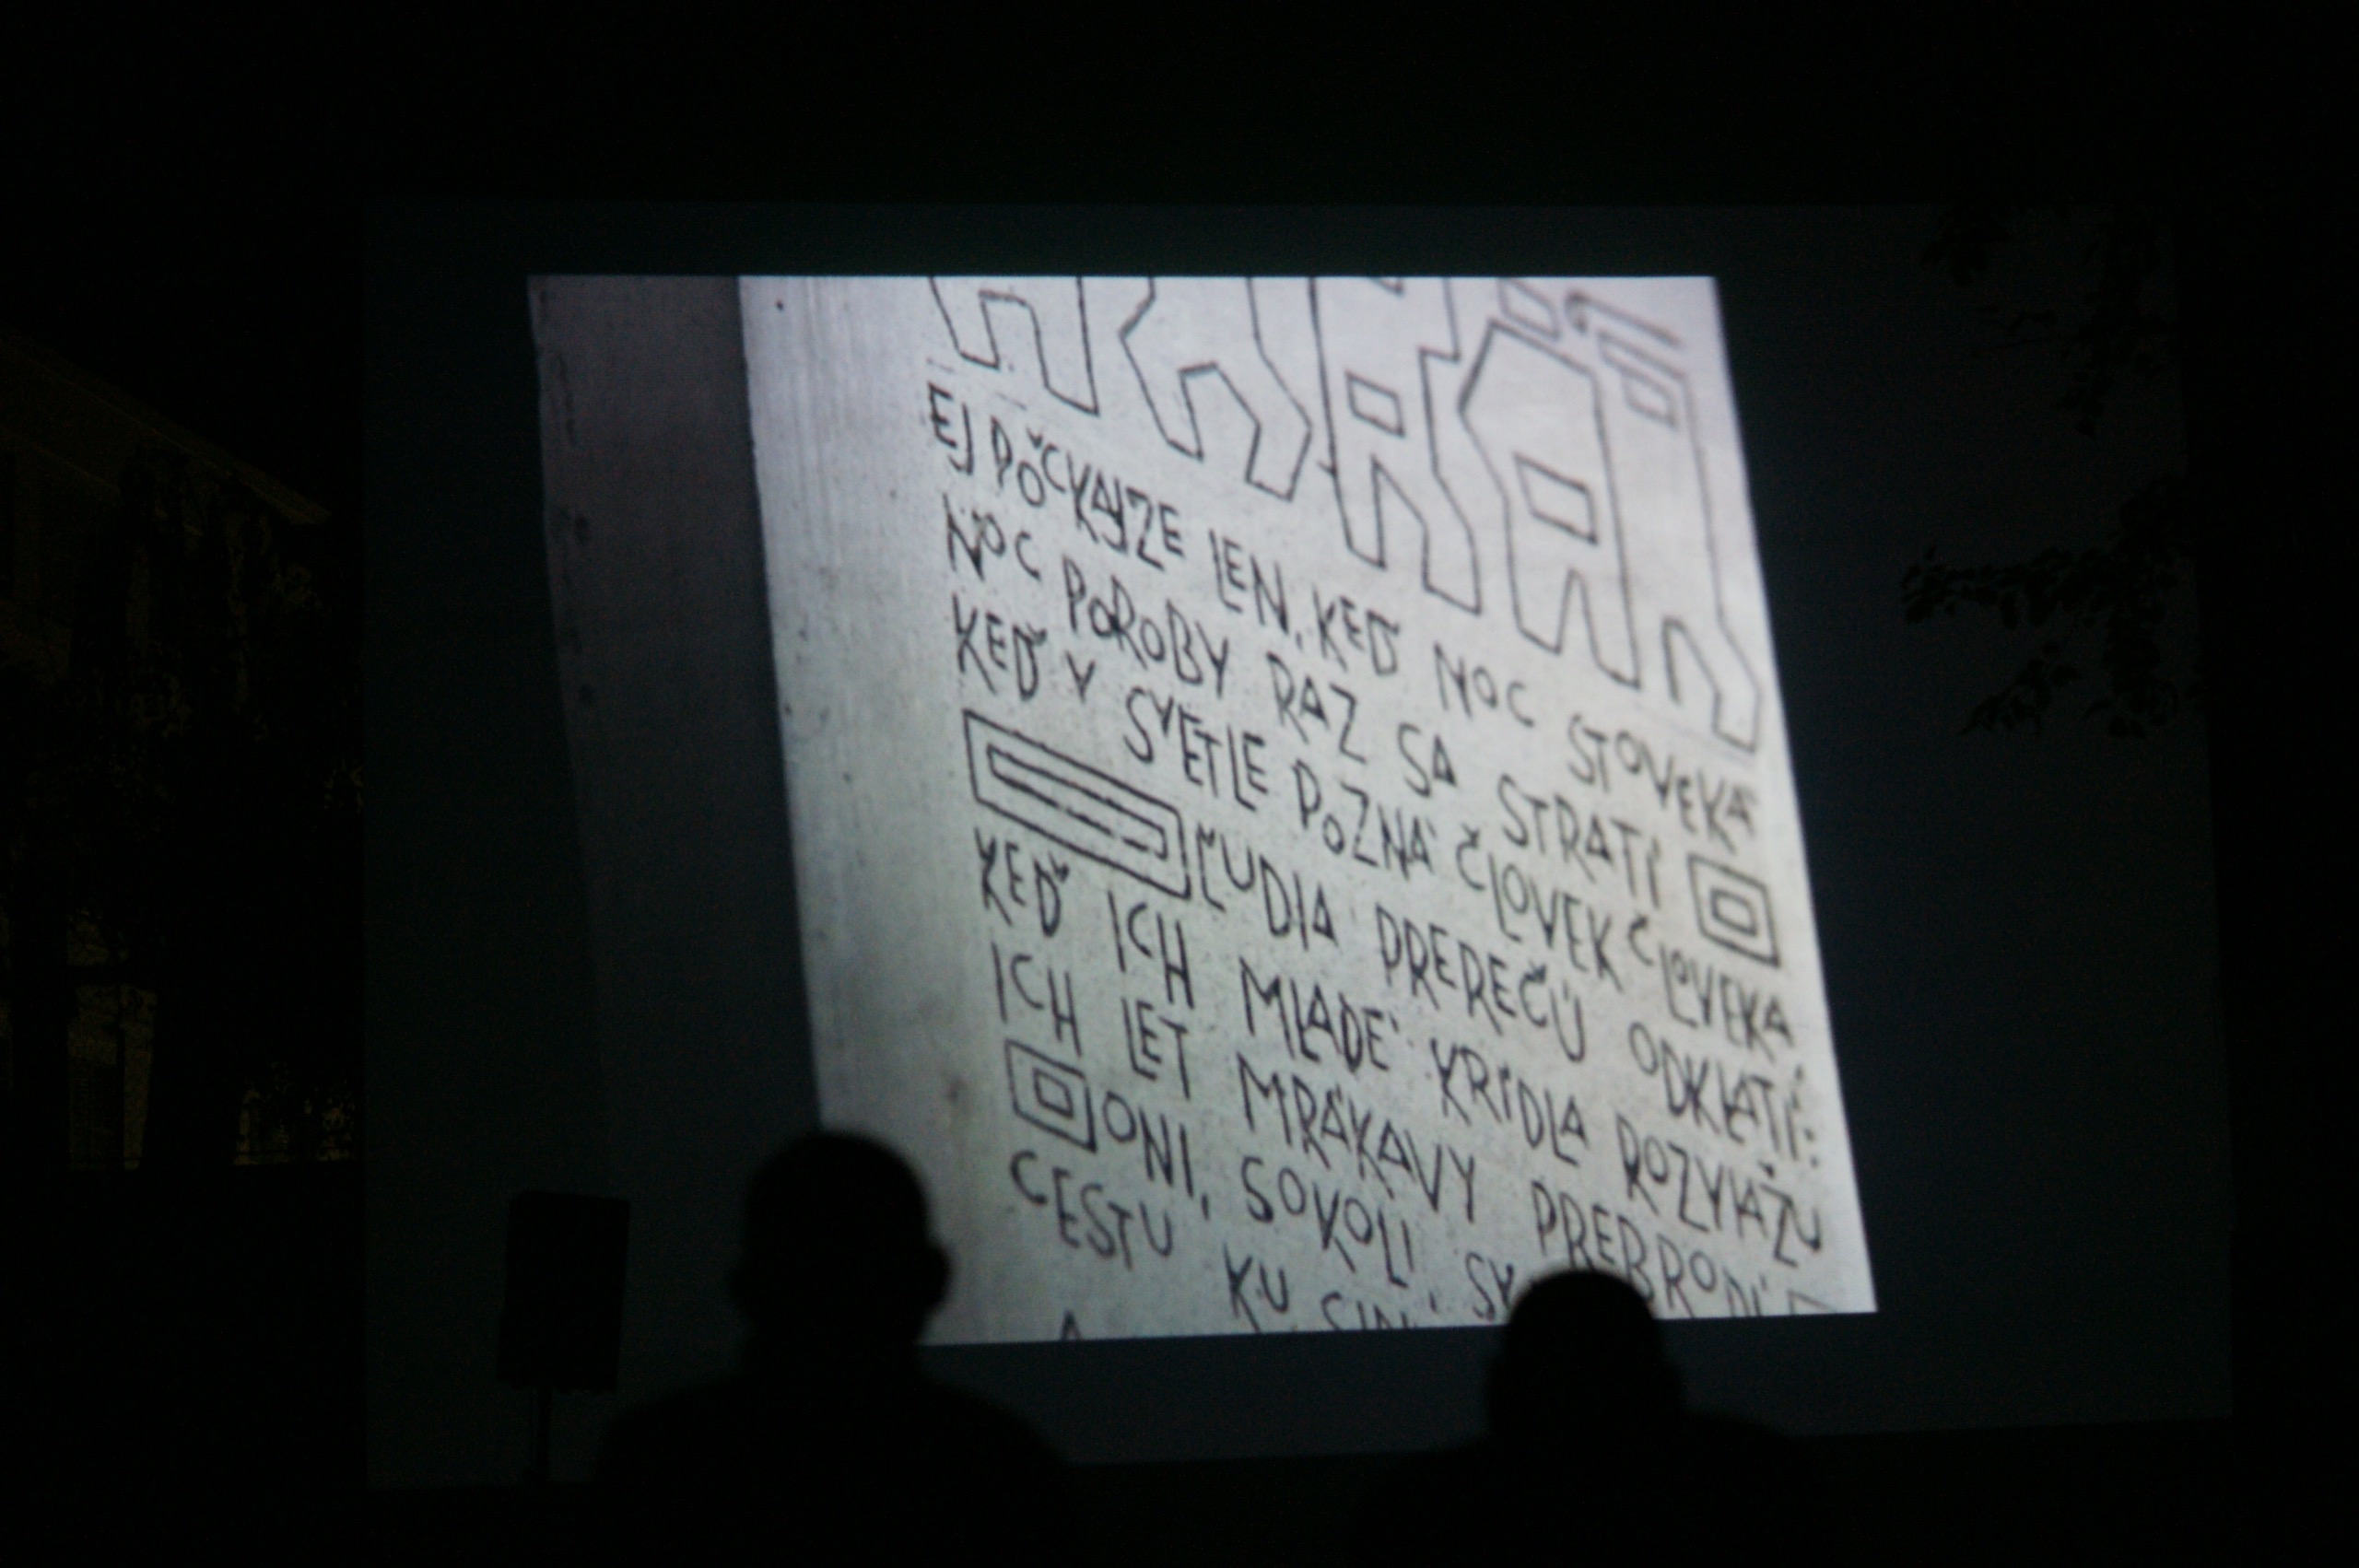 EJ POČKAJZE LEN, KEĎ NOC STOVEKÁ
NOC POROBY RAZ SA STRATÍ
KEĎ V SVETLE POZNÁ ČLOVEK ČLOVEKA
ĽUDIA PREREČÚ ODKLATÍ:
KEĎ ICH MLADÉ KRÍDLA ROZVIAŽU
ICH LET MRÁKAVY PREBRODÍ
ONI, SOKOLI
CESTU KU